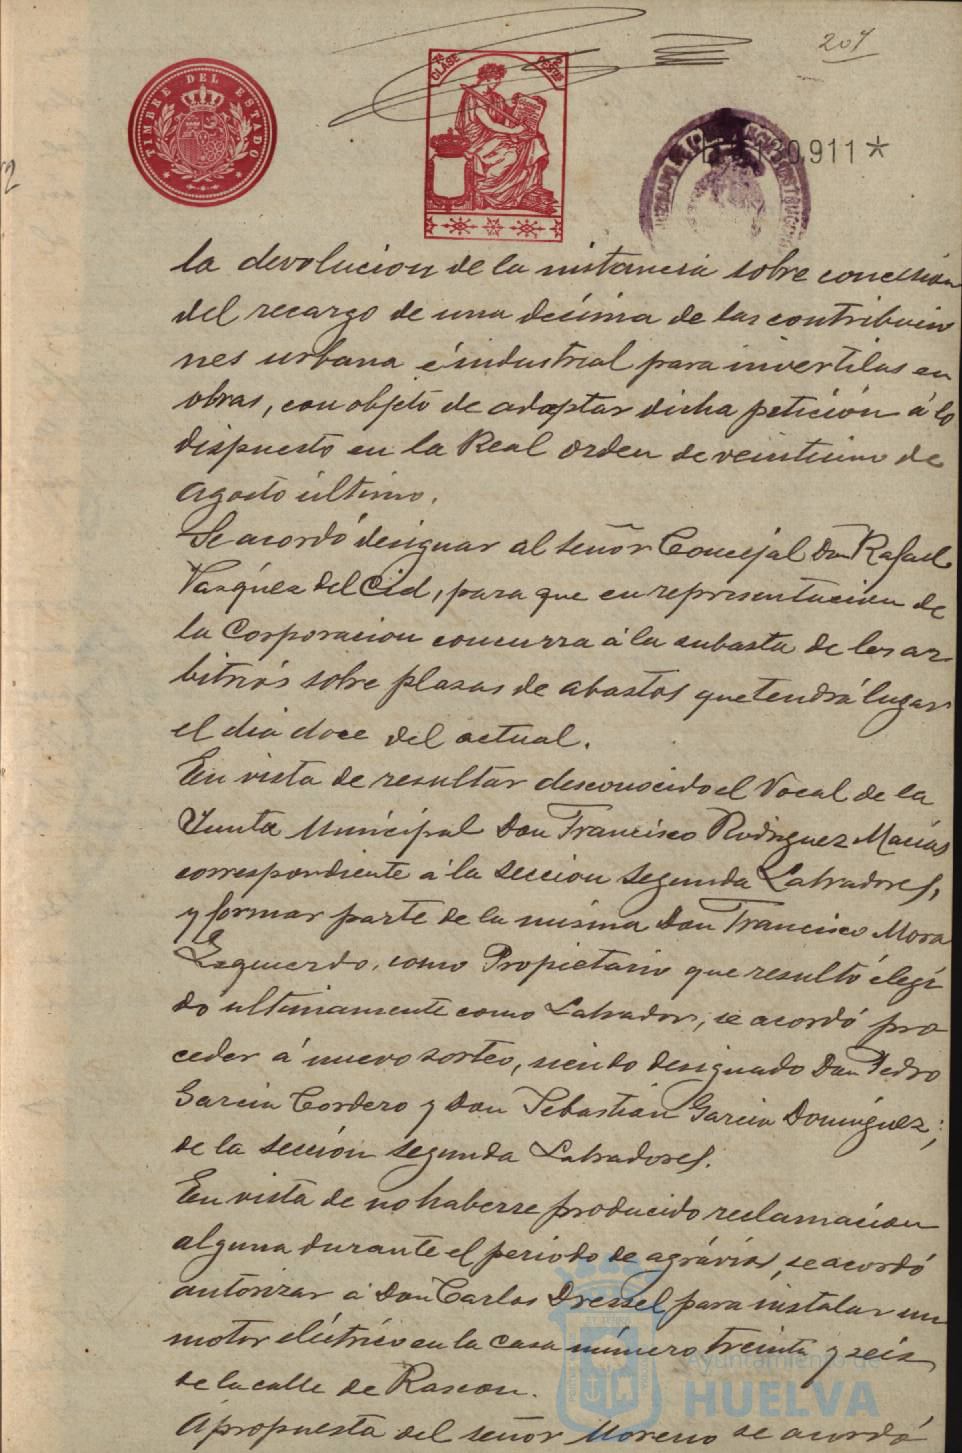 207
TIMBRE DEL ESTADO
CLASE
130,911 *
la devolucion de la instancia sobre concesion
del recargo de una décima de las contribucio
nes urbana é industrial para invertilas en
obras, con objeto de adaptar dicha petición á lo
dispuesto en la Real orden de veintiuno de
Agosto último.
Se acordó designar al señor Concejal Don Rafael
Vazquez del Cid, para que en representacion de
la Corporacion concurra á la subasta de los ar
bitrios sobre plazas de abastos que tendrá lugar
el dia doce del actual.
En vista de resultar desconocido el Vocal de la
Junta Municipal Don Francisco Rodriguez Macias
correspondiente á la seccion segunda Labradores,
y formar parte de la misma Don Francisco Mora
Izquierdo, como Propietario que resultó elegi
do ultimamente como Labrador, se acordó pro
ceder á nuevo sorteo, siendo designado Don Pedro
Garcia Cordero y Don Sebastián Garcia Dominguez;
de la sección segunda Labradores.
En vista de no haberse producido reclamacion
alguna durante el periodo de agravios, se acordó
autorizar á Don Carlos Dressel para instalar un
motor eléctrico en la casa número treinta y seis
de la calle de Rascon.
Ayuntamiento de
HUELVA
A propuesta del señor Moreno se acordó